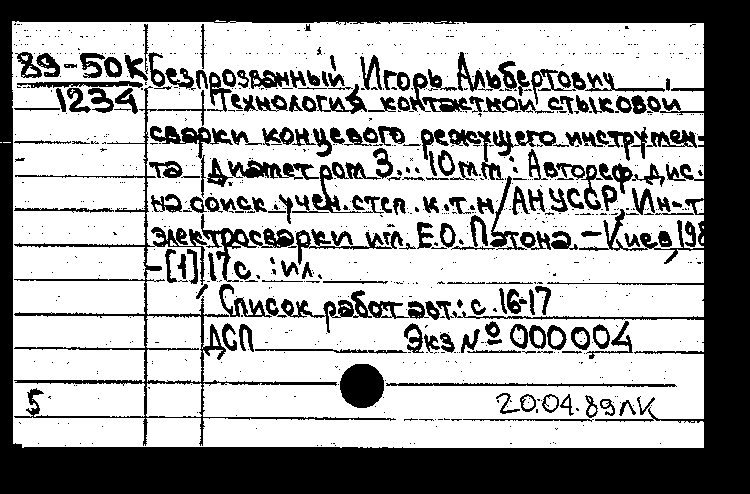 89-50К Безпрозванный, Игорь Альбертович
1234 Технология контактной стыковой
сварки концевого режущего инструмен-
та диаметром 3...10 mm : Автореф. дис.
на соиск. учен. степ. к.т.н / АН УССР, Ин-т
электросварки им. Е.О. Патона. - Киев, 198
-[1], 17 с. : ил.
Список работ авт.: с. 16-17
ДСП Экз № 000004
5 20.04.89 ЛК